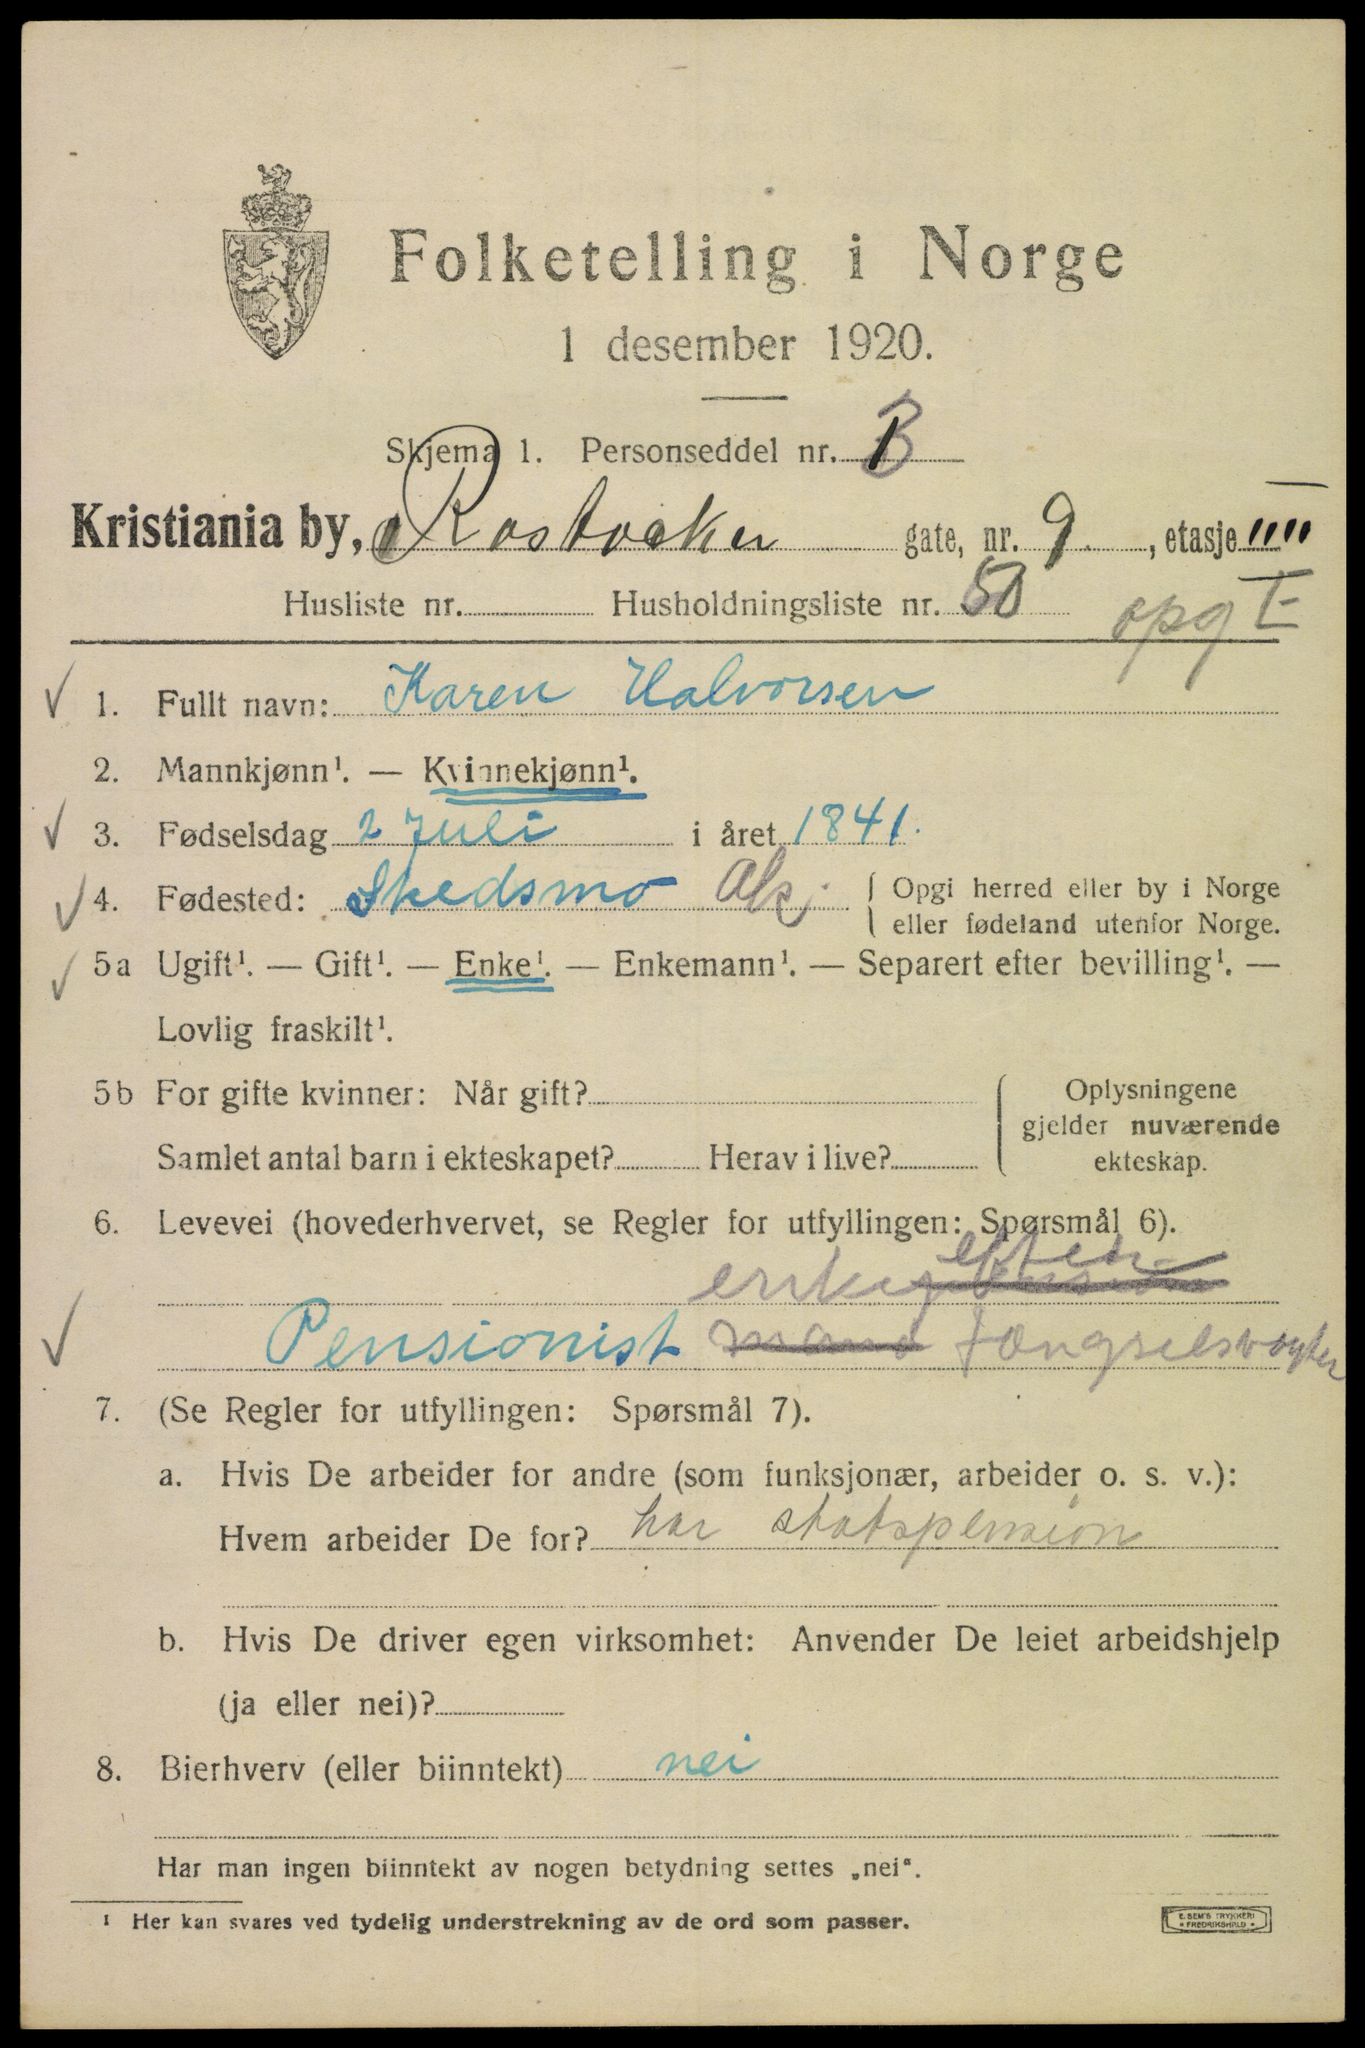 Folketelling i Norge
1 desember 1920.
Skjema 1. Personseddel nr. 1 B
Kristiania by, Rostocker gate, nr. 9, etasje
Husliste nr. Husholdningsliste nr. 50 opg I
1. Fullt navn: Karen Halvorsen
2. Mannkjønn¹. — Kvinnekjønn¹.
3. Fødselsdag 2 Juli i året 1841.
4. Fødested: Skedsmo Ak. Opgi herred eller by i Norge
eller fødeland utenfor Norge.
5a Ugift¹. — Gift¹. — Enke¹. — Enkemann¹. — Separert efter bevilling¹. —
Lovlig fraskilt¹.
5b For gifte kvinner: Når gift?
Samlet antal barn i ekteskapet? Herav i live?
Oplysningene
gjelder nuværende
ekteskap.
6. Levevei (hovederhvervet, se Regler for utfyllingen: Spørsmål 6).
enke efter
Pensionist fængselsvogter
7. (Se Regler for utfyllingen: Spørsmål 7).
a. Hvis De arbeider for andre (som funksjonær, arbeider o. s. v.):
Hvem arbeider De for? har statspension
b. Hvis De driver egen virksomhet: Anvender De leiet arbeidshjelp
(ja eller nei)?
8. Bierhverv (eller biinntekt) nei
Har man ingen biinntekt av nogen betydning settes „nei“.
¹ Her kan svares ved tydelig understrekning av de ord som passer.
E. SEM'S TRYKKERI
FREDRIKSHALD